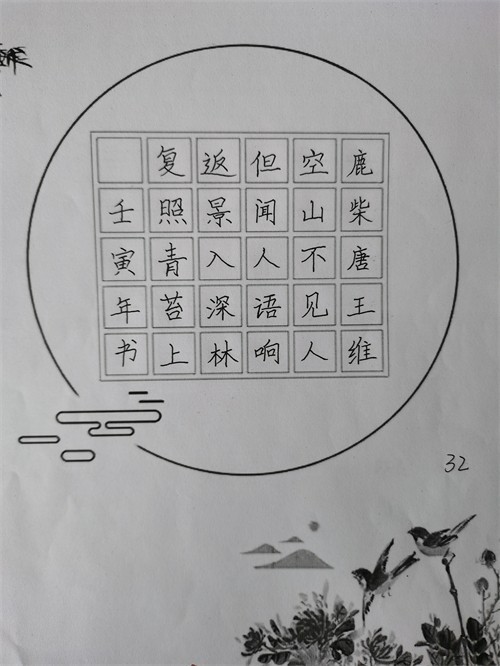 鹿柴唐王维
空山不见人
但闻人语响
返景入深林
复照青苔上
壬寅年书
32